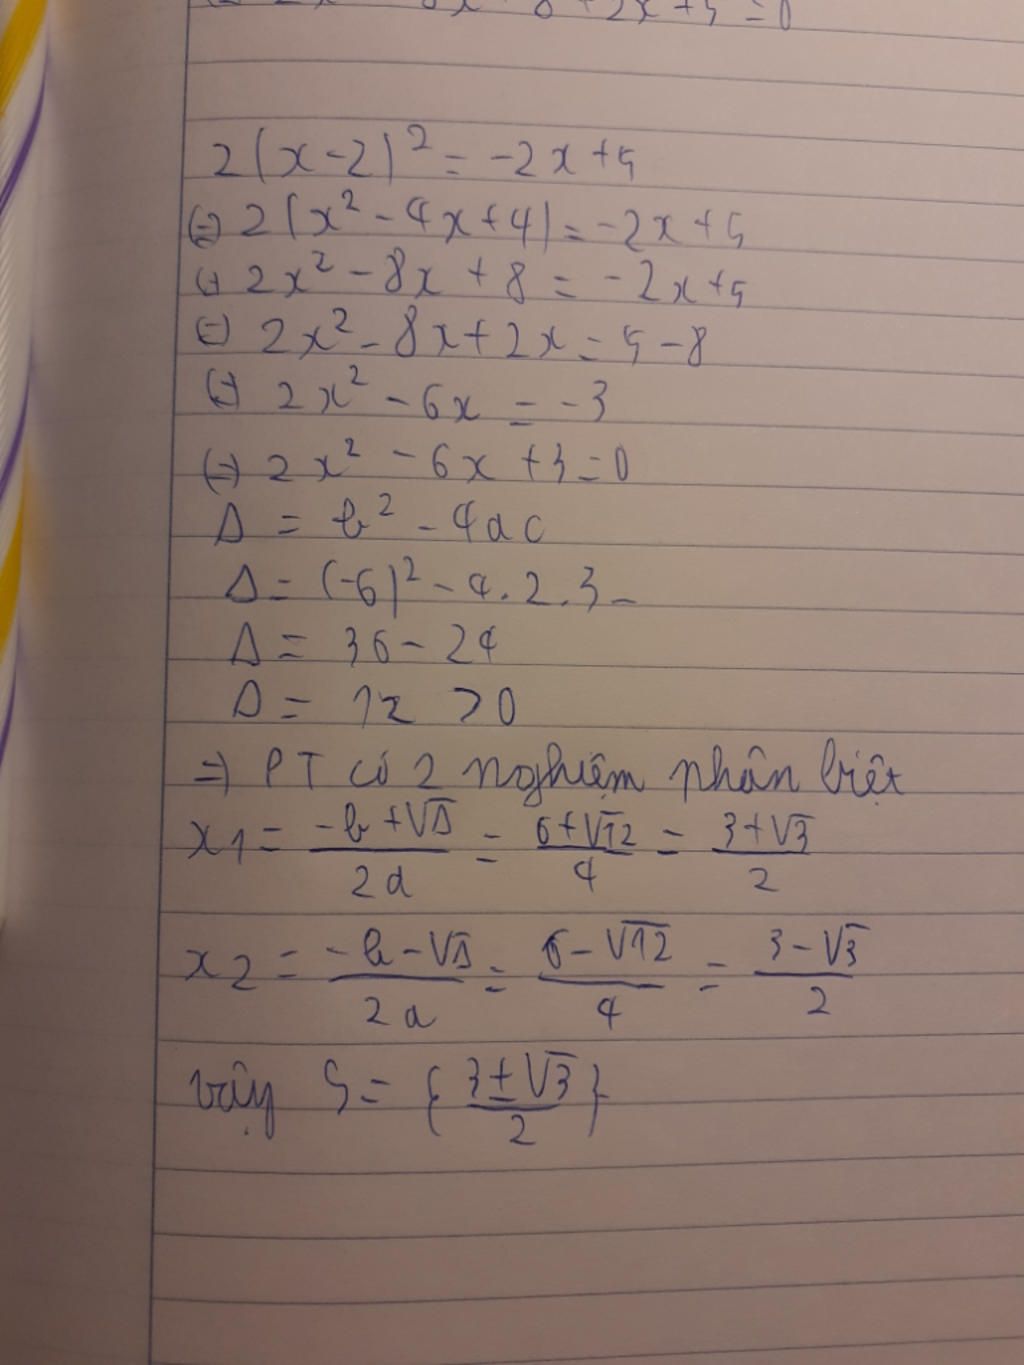 2(x-2)² = -2x+5
(=) 2(x²-4x+4) = -2x+5
(=) 2x²-8x+8 = -2x+5
(=) 2x²-8x+2x = 5-8
(=) 2x²-6x = -3
(=) 2x²-6x+3=0
Δ = b²-4ac
Δ = (-6)²-4.2.3
Δ = 36-24
Δ = 12 >0
=) PT có 2 nghiệm phân biệt
x1 = (-b+√Δ)/2a = (6+√12)/4 = (3+√3)/2
x2 = (-b-√Δ)/2a = (6-√12)/4 = (3-√3)/2
vậy S = {(3±√3)/2}